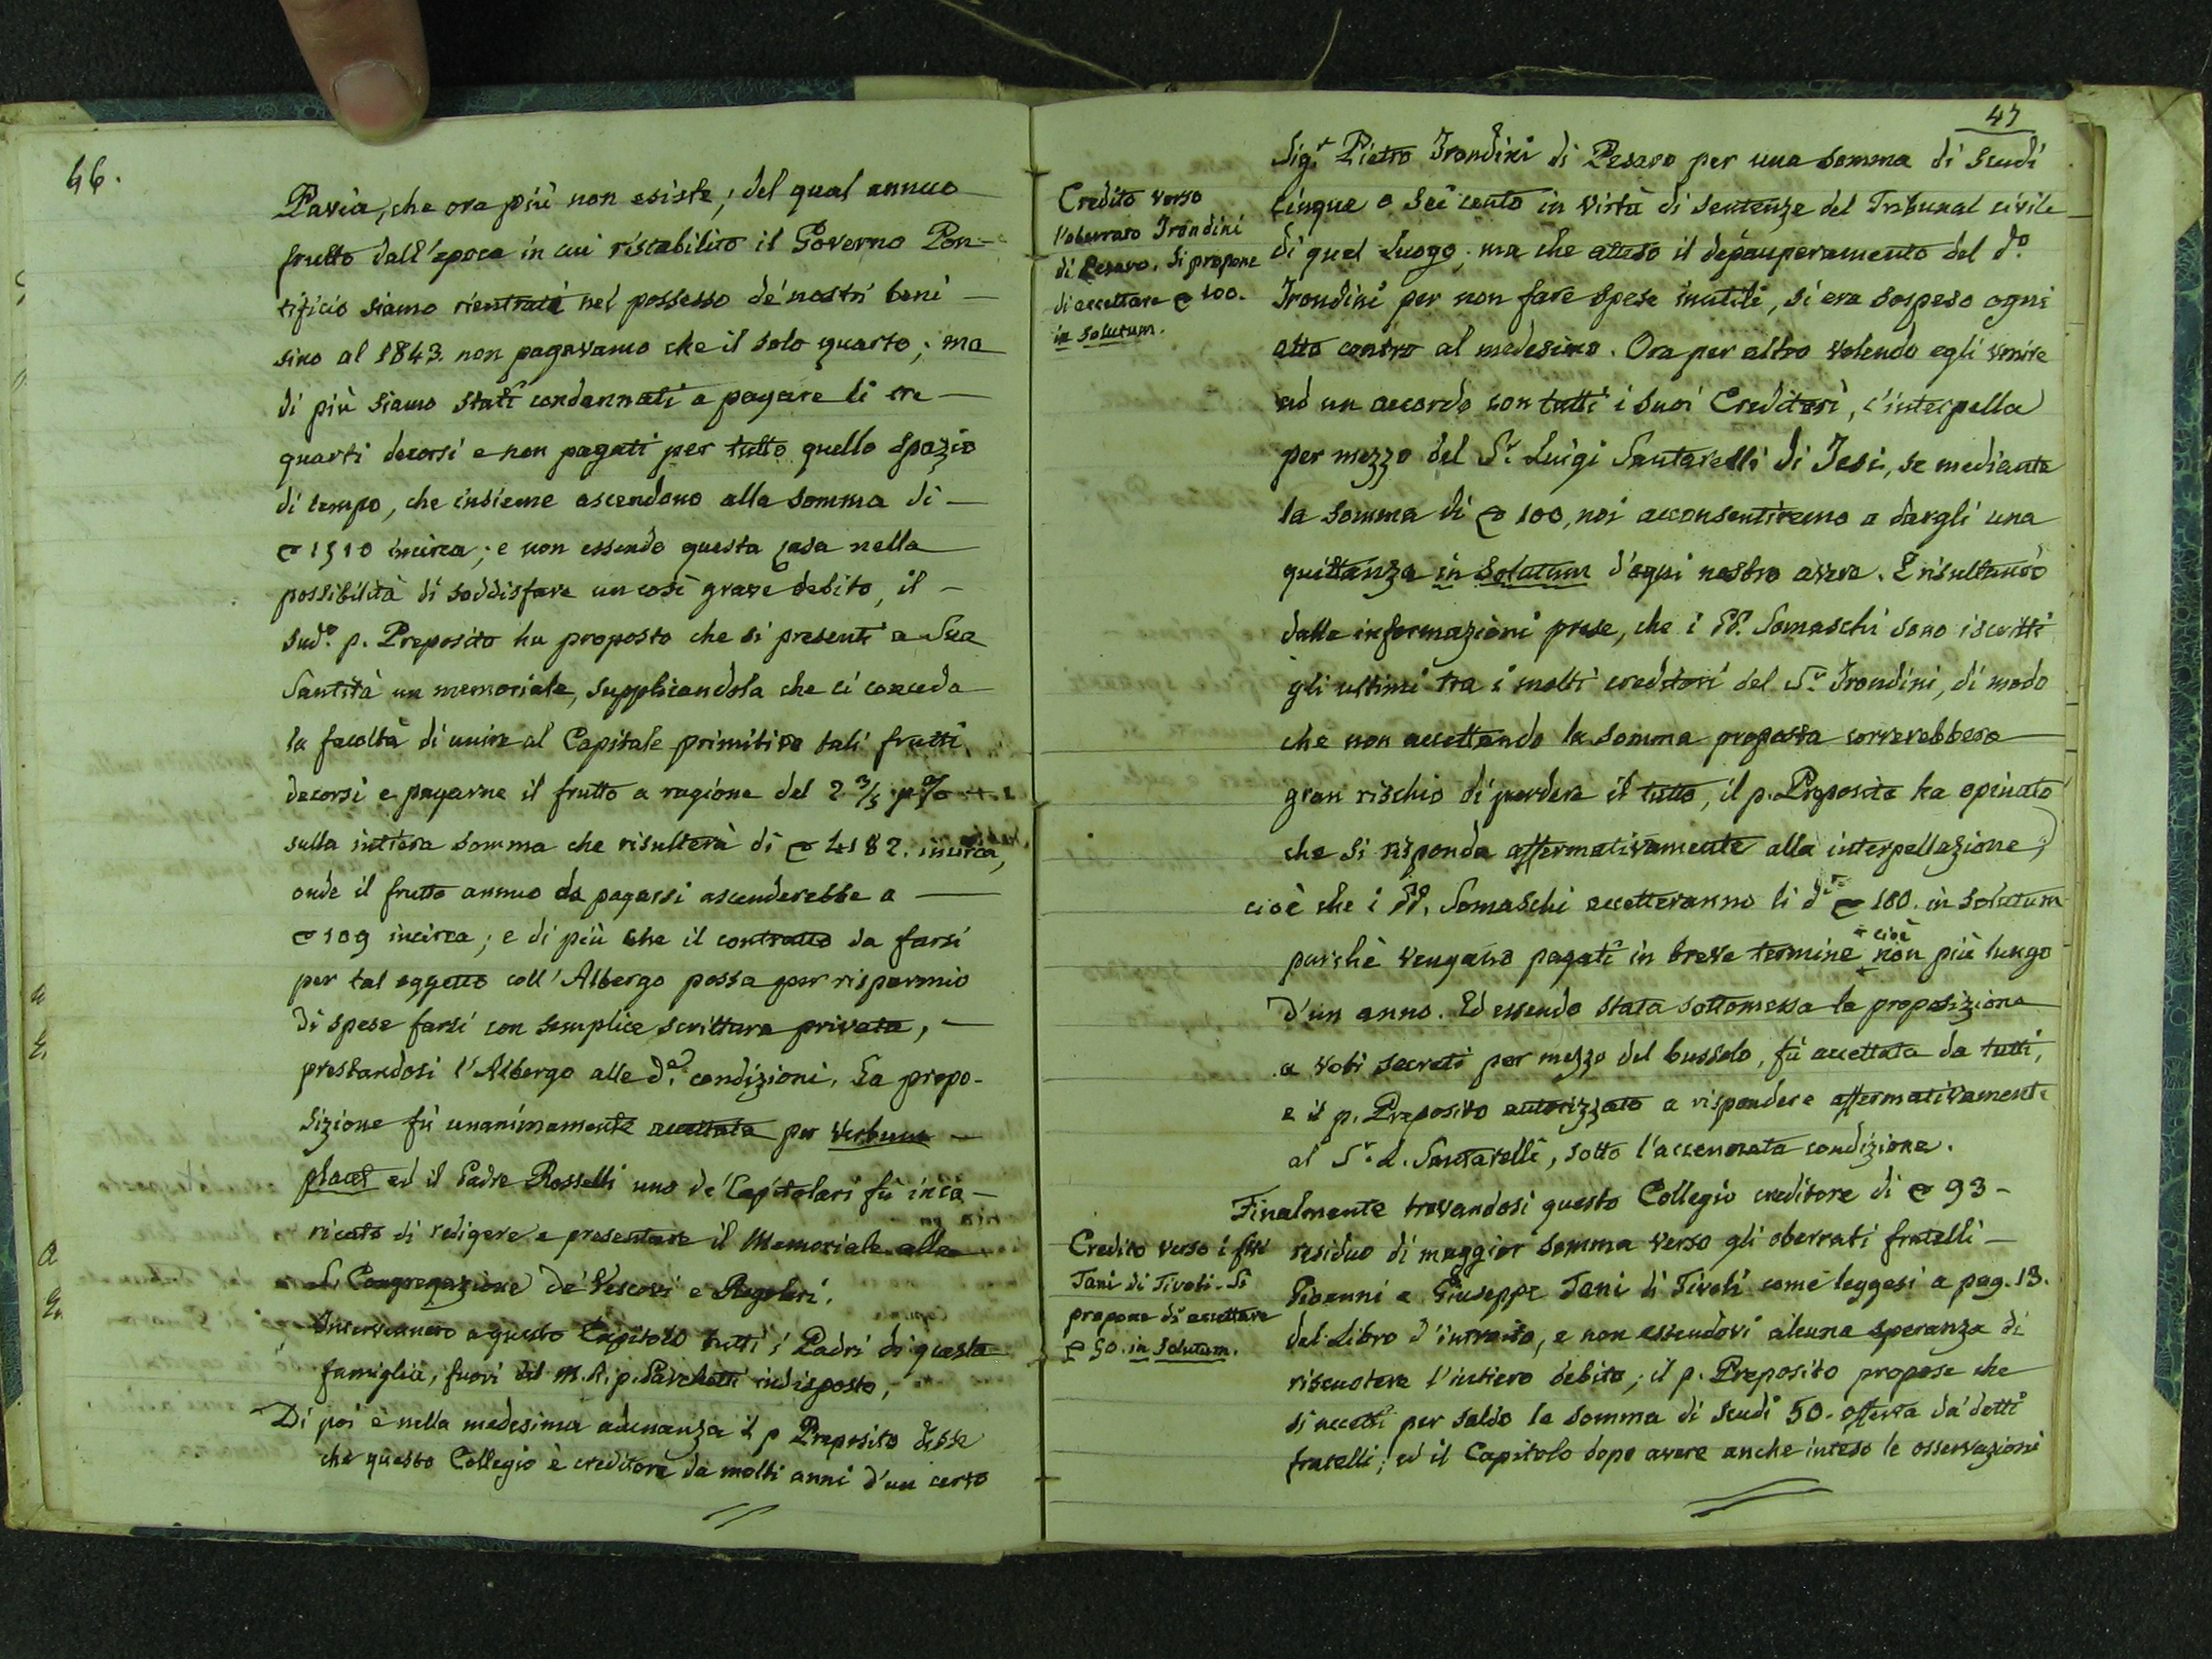 46.
Pavia, che ora più non esiste; del qual annuo
frutto dall'epoca in cui ristabilito il Governo Pon-
tificio siamo rientrati nel possesso de' nostri beni —
sino al 1843. non pagavamo che il solo quarto; ma
di più siamo stati condannati a pagare li tre —
quarti decorsi e non pagati per tutto quello spazio
di tempo, che insieme ascendono alla somma di —
1510 incirca; e non essendo questa casa nella
possibilità di soddisfare un così grave debito, il —
sud.º p. Preposito ha proposto che si presenti a Sua
Santità un memoriale, supplicandola che ci conceda
la facoltà di unire al Capitale primitivo tali frutti
decorsi e pagarne il frutto a ragione del 2 3/5 p%
sulla intiera somma che risulterà di 4182. incirca,
onde il frutto annuo da pagarsi ascenderebbe a —
109 incirca; e di più che il contratto da farsi
per tal oggetto coll'Albergo possa per risparmio
di spese farsi con semplice scrittura privata, —
prestandosi l'Albergo alle d.e condizioni. La propo-
sizione fù unanimamente accettata per Verbum —
placet ed il Padre Rosselli uno de' Capitolari fù inca-
ricato di redigere e presentare il Memoriale alla
S. Congregazione de' Vescovi e Regolari.
Intervennero a questo Capitolo tutti i Padri di questa
famiglia, fuori del M. R. p. Parchetti indisposto,
Di poi è nella medesima adunanza il p Preposito disse
che questo Collegio è creditore da molti anni d'un certo
47
Sig.r Pietro Trondini di Pesaro per una somma di Scudi
cinque o sei cento in virtù di sentenze del Tribunal civile
di quel luogo; ma che atteso il depauperamento del d.º
Trondini per non fare spese inutili, si era sospeso ogni
atto contro al medesimo. Ora per altro volendo egli venire
ad un accordo con tutti i suoi Creditori, c'interpella
per mezzo del S.r Luigi Santarelli di Jesi, se mediante
la somma di 100, noi acconsentiremo a dargli una
quittanza in solutum d'ogni nostro avere. E risultando
dalle informazioni prese, che i PP. Somaschi sono iscritti
gli ultimi tra i molti creditori del S.r Trondini, di modo
che non accettando la somma proposta correrebbero
gran rischio di perdere il tutto, il p. Preposito ha opinato
che si risponda affermativamente alla interpellazione;
cioè che i PP. Somaschi accetteranno li d.i 100. in solutum
purchè vengano pagati in breve termine cioè non più lungo
d'un anno. Ed essendo stata sottomessa la proposizione
a voti secreti per mezzo del bussolo, fù accettata da tutti,
e il p. Preposito autorizzato a rispondere affermativamente
al S.r L. Santarelli, sotto l'accennata condizione.
Finalmente trovandosi questo Collegio creditore di 93 —
residuo di maggior somma verso gli oberrati fratelli —
Giovanni e Giuseppe Tani di Tivoli come leggesi a pag. 13.
del Libro d'introito, e non essendovi alcuna speranza di
riscuotere l'intiero debito; il p. Preposito propose che
si accetti per saldo la somma di scudi 50. offerta da' detti
fratelli; ed il Capitolo dopo avere anche inteso le osservazioni
Credito verso
l'oberrato Trondini
di Pesaro. Si propone
di accettare 100.
in solutum.
Credito verso i flli
Tani di Tivoli. Si
propone di accettare
50. in solutum.